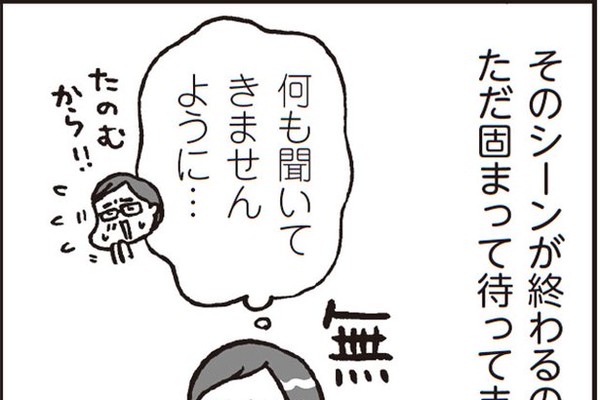 そのシーンが終わるの
ただ固まって待ってま
何も聞いて
きません
ように…
たのむ
から!!
無